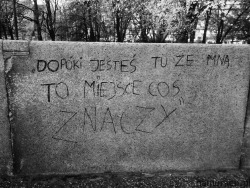 „DOPÓKI JESTEŚ TU ZE MNĄ
TO MIEJSCE COŚ
ZNACZY”